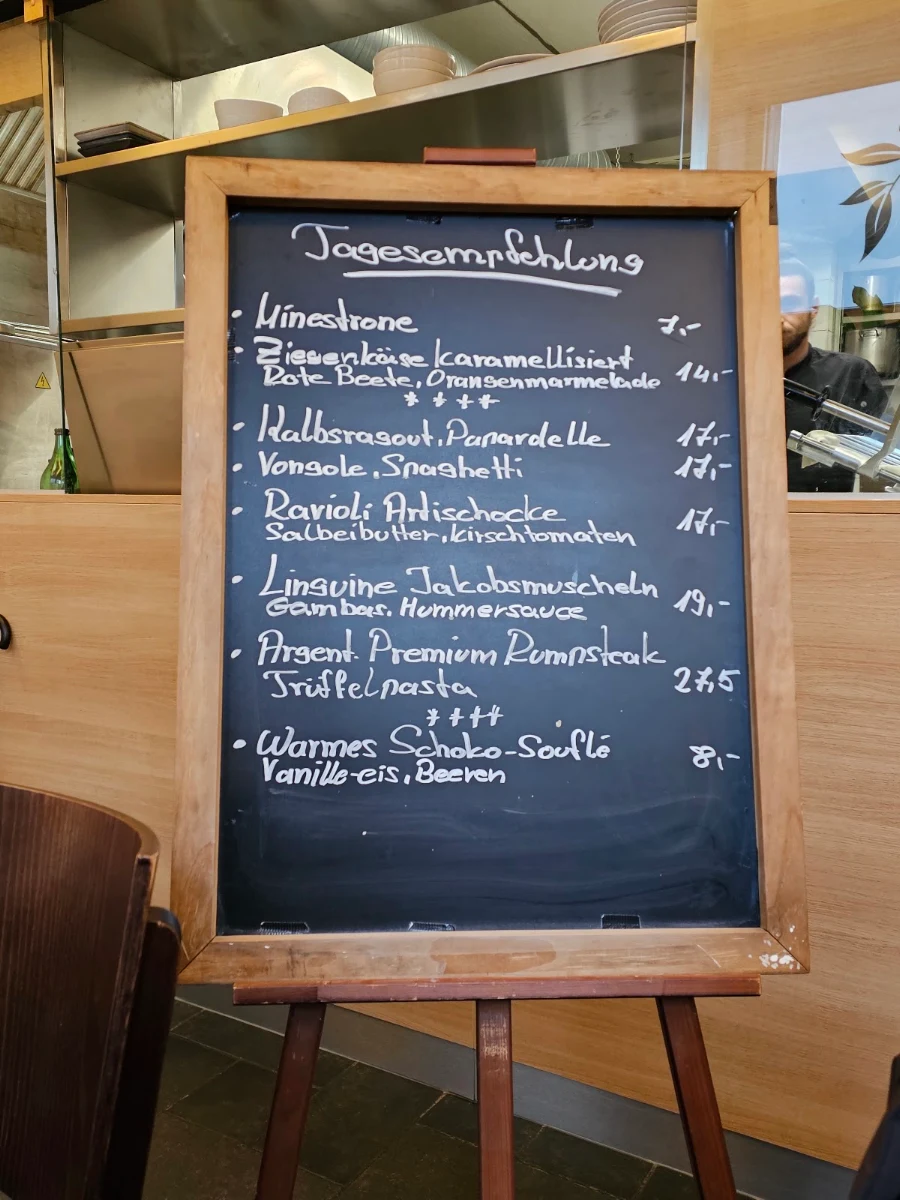 Tagesempfehlung
• Minestrone 7,-
• Ziegenkäse karamellisiert
Rote Beete, Orangenmarmelade 14,-
****
• Kalbsragout, Papardelle 17,-
• Vongole, Spaghetti 17,-
• Ravioli Artischocke
Salbeibutter, Kirschtomaten 17,-
• Linguine Jakobsmuscheln
Gambas, Hummersauce 19,-
• Argent. Premium Rumpsteak
Trüffelpasta 27,5
****
• Warmes Schoko-Souflé 8,-
Vanille-eis, Beeren